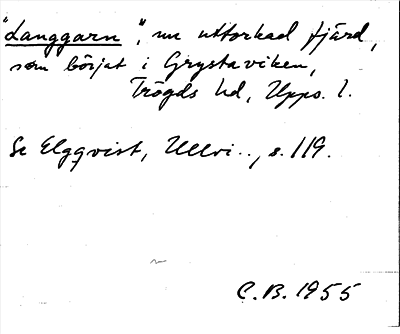 "Langgarn", nu uttorkad fjärd,
som börjat i Grystaviken,
Trögds hd, Upps. l.
Se Elgqvist, Ullvi.., s. 119.
C.B. 1955